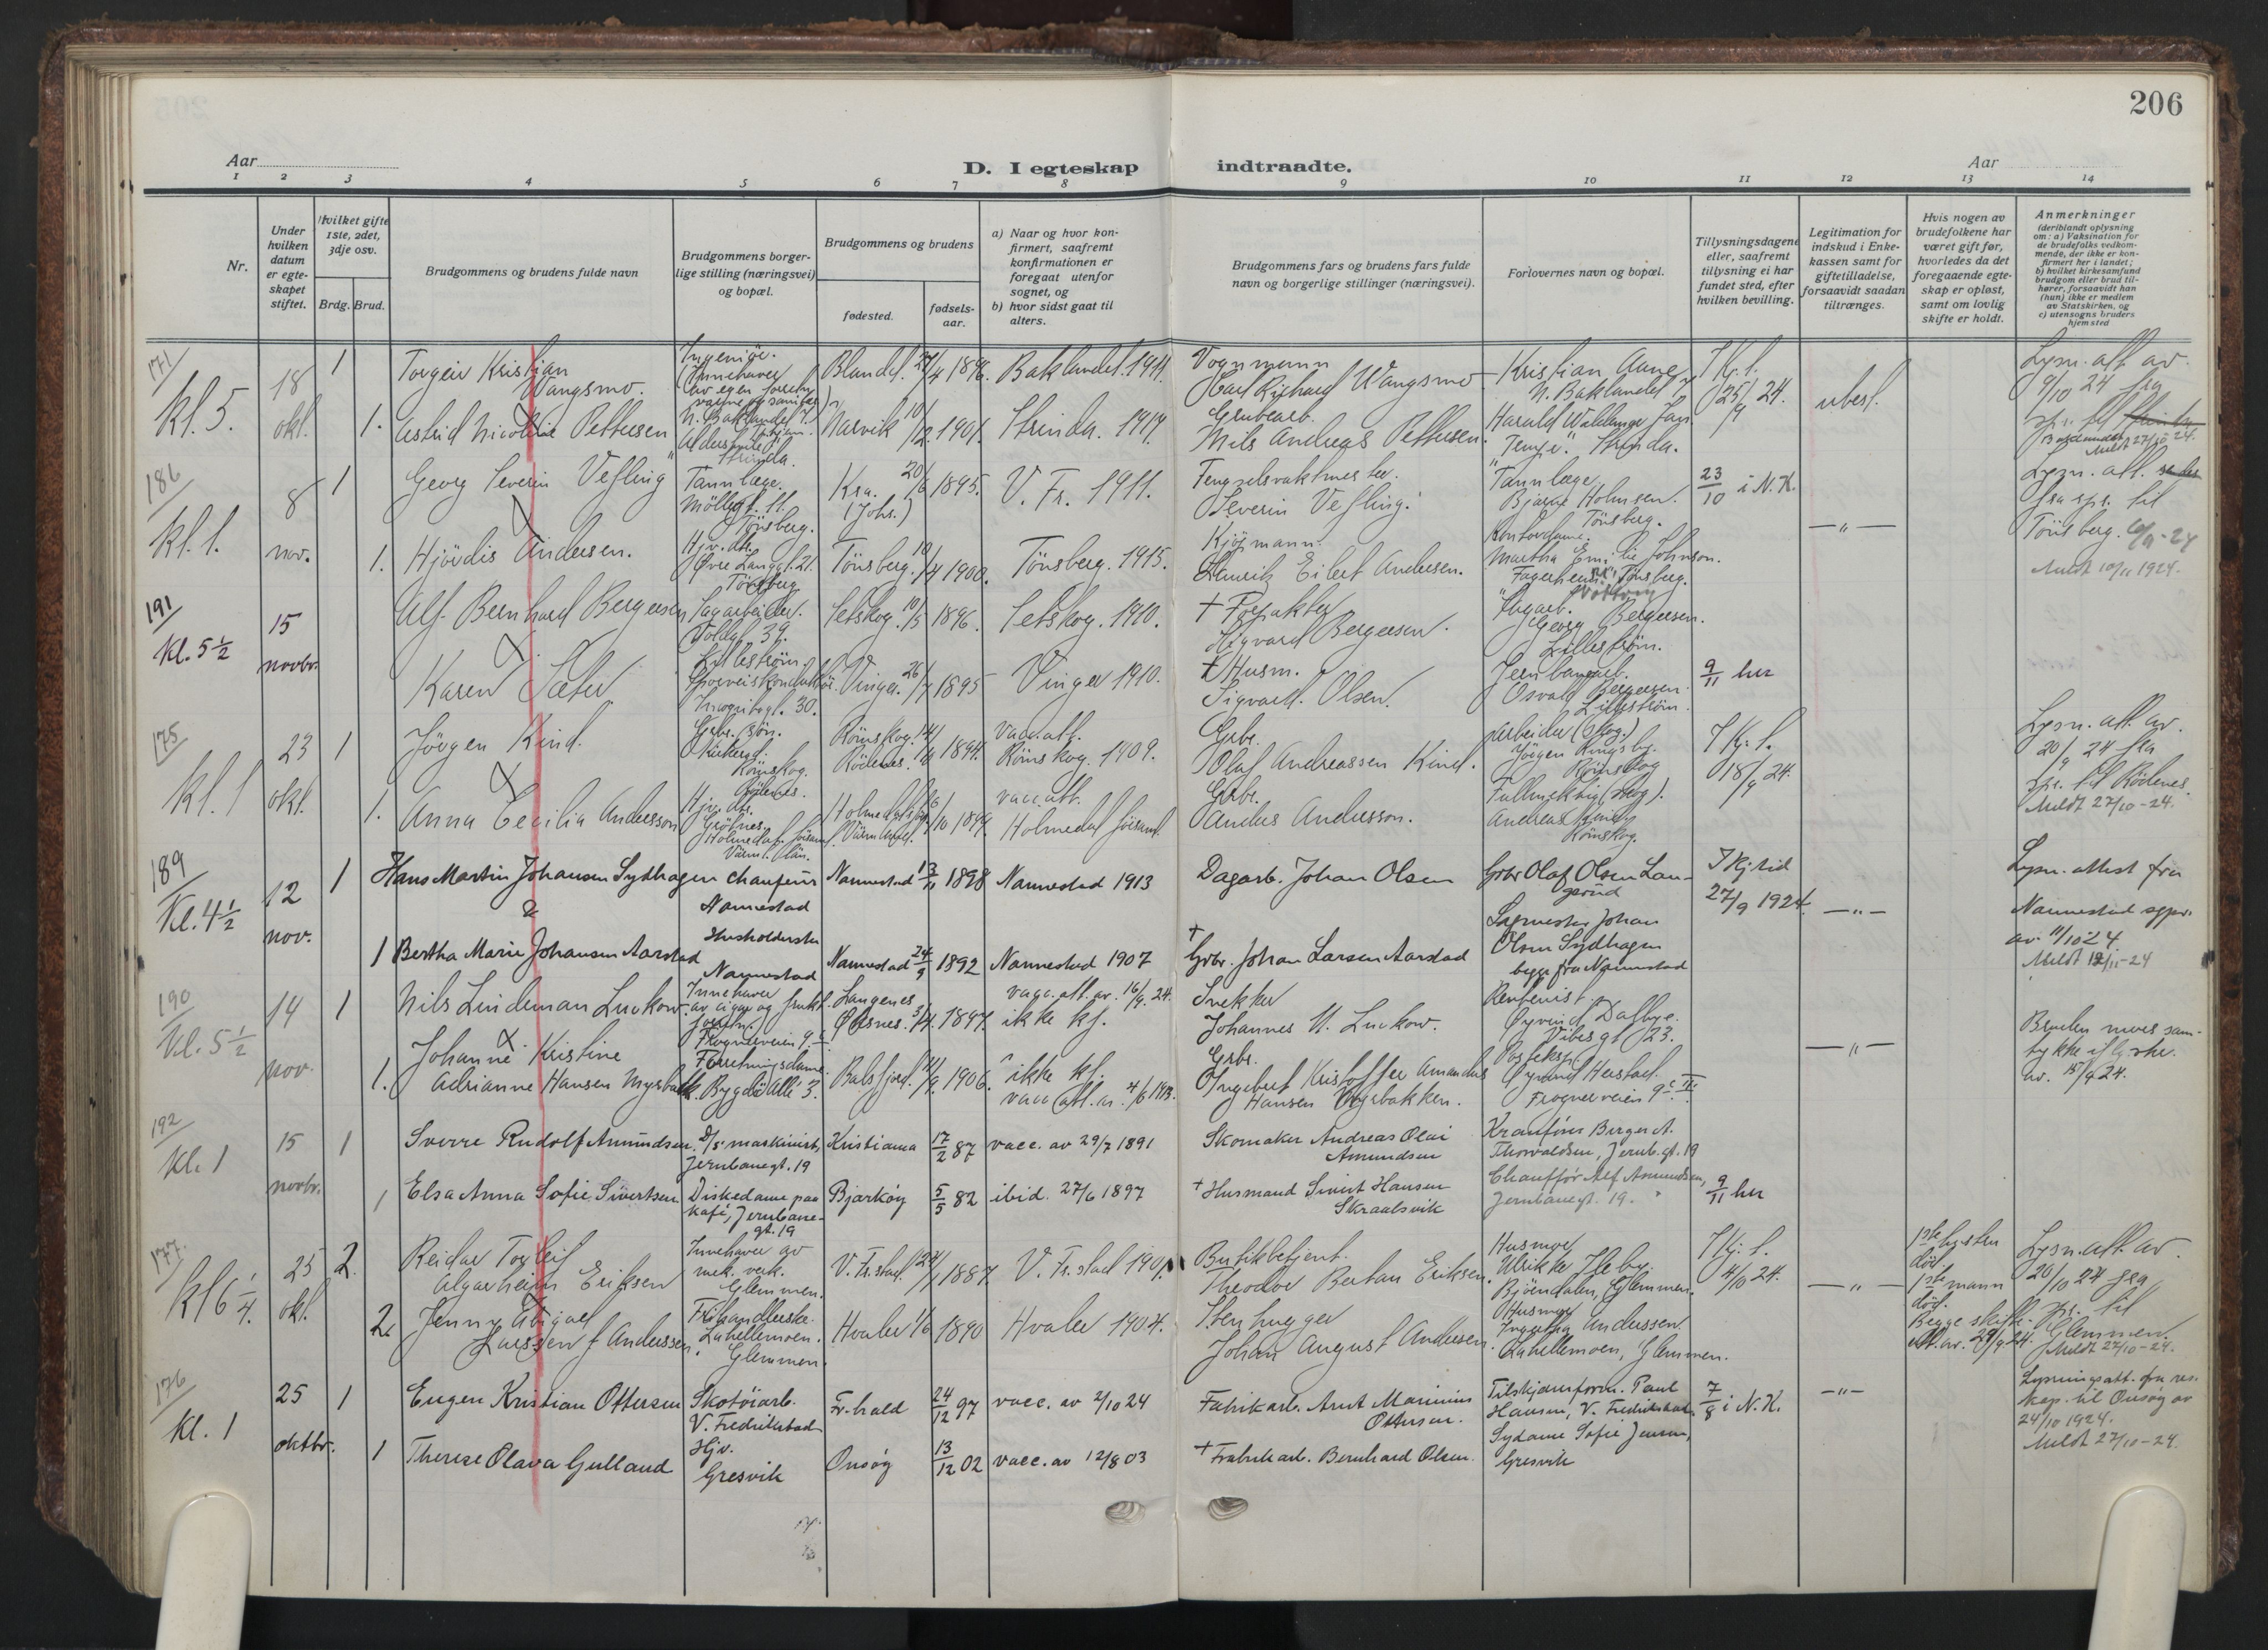 206
Aar
D. I egteskap indtraadte.
Aar
1 2 3 4 5 6 7 8 9 10 11 12 13 14
Nr.
Under hvilken datum er egteskapet stiftet.
Hvilket gifte 1ste, 2det, 3dje osv.
Brdg. Brud.
Brudgommens og brudens fulde navn
Brudgommens borgerlige stilling (næringsvei) og bopæl.
Brudgommens og brudens
fødested.
fødselsaar.
a) Naar og hvor konfirmert, saafremt konfirmationen er foregaat utenfor sognet, og
b) hvor sidst gaat til alters.
Brudgommens fars og brudens fars fulde navn og borgerlige stillinger (næringsvei).
Forlovernes navn og bopæl.
Tillysningsdagene eller, saafremt tillysning ei har fundet sted, efter hvilken bevilling.
Legitimation for indskud i Enkekassen samt for giftetilladelse, forsaavidt saadan tiltrænges.
Hvis nogen av brudefolkene har været gift før, hvorledes da det foregaaende egteskap er opløst, samt om lovlig skifte er holdt.
Anmerkninger
(deriblandt oplysning om: a) Vaksination for de brudefolks vedkommende, der ikke er konfirmert her i landet; b) hvilket kirkesamfund brudgom eller brud tilhører, forsaavidt han (hun) ikke er medlem av Statskirken, og c) utensogns bruders hjemsted
171 kl. 5. 18 okt. 1
Torgeir Kristian Wangsmo.
Ingeniør. (Innehaver av egen forretn.
Baklandet 1911.
Vognmann
Carl Richard Wangsmo
Kristian Aune
N. Baklandet 7
25/9 24.
ubesl.
Lysn. att. av 9/10 24 fra
1. Astrid Nicoline Pettersen
Strinda.
Narvik 10/12 1901. Strinda. 1917.
Grubearb.
Nils Andreas Pettersen.
Strinda.
Meldt 27/10 24.
186 kl. 1. 8 nov. 1
Georg Severin Vefling
Tannlæge.
Møllegt. 11. Tönsberg.
Kra. (Johs.) 20/6 1895. V. Fr. 1911.
Fengselsvaktmester.
Severin Vefling.
Tannlæge
Bjarne Holmsen. Tönsberg.
23/10 i N.K.
—"—
Lysn. att.
fra sps. til Tönsberg.
Meldt 10/11 1924.
1. Hjördis Andersen.
Hjv. dtr.
Øvre Langgt. 21. Tönsberg
Tönsberg. 10/4 1900. Tönsberg. 1915.
Kjømann.
Henrik Eilert Andersen.
Kontordame.
Martha Emilie Johnson.
Fagerheim, Tönsberg.
191 Kl. 5½ 15 novbr.
Alf Bernhard Bergersen
Sagarbeider.
Voldgt. 39. Lillestrøm.
Setskog. 10/5 1896. Setskog. 1910.
+ Forpakter
Sigvard Bergersen.
Georg Bergersen.
Lillestrøm.
Karen Sæter
Sporveiskonduktør.
30.
Vinger. 26/7 1895 Vinger 1910.
+ Husm.
Sigvard. Olsen.
Jernbanearb.
Osvald Bergersen.
Lillestrøm.
9/11 her
175 kl. 1 23 okt. 1
Jörgen Kind.
Grbr. søn.
Römskog. Rödenes.
Römskog. Rödenes. 14/10 1894. vacc. att. Römskog. 1909.
Grbr.
Olaf Andreassen Kind.
Arbeider (Skog.)
Jörgen Kringsby.
Römskog
18/9 24.
Lysn. att. av. 20/9 24 fra
spr. til Rödenes.
Meldt 27/10-24.
1. Anna Cecilia Andersson
Hjv. dtr.
Holmedal
1899. vacc. att. Holmedal
Grbr.
Andersson.
Fullmektig (Skog).
Andreas
Römskog.
189 Kl. 4½ 12 nov. 1
Hans Martin Johansen Sydhagen
&
chaufeur
Nannestad
Nannestad 13/11 1898 Nannestad 1913
Dagarb. Johan Olsen
Grbr Olaf Olsen Langerud
I Kj. tid 27/9 1924.
—"—
Lysn. attest fra
Nannestad sgpr.
av. 11/10 24
Meldt 12/11-24
1 Bertha Marie Johansen Aarstad
Husholderske
Nannestad
Nannestad 24/9 1892 Nannestad 1907
+ Grbr. Johan Larsen Aarstad
Sagmester Johan Olsen Sydhagen
begge fra Nannestad
190 Kl. 5½ 14 nov. 1
Nils Lindeman Luckow.
Innehaver av cigar og frukt forretn.
Frognerveien 9.
Langenes. Öksnes. 3/4. 1897. vacc. att. av. 16/9. 24. ikke kf.
Snekker
Johannes U. Luckow.
Repenist.
Øyvind Dalbye.
Vibesgt 23.
—"—
Bruden mors samtykke
av. 15/9 24.
1. Johanne Kristine
Adrianne Hansen Myrbakk.
Forretningsdame.
Bygdö Allé 3.
Balsfjord. 1906. ikke kf. vacc. att. av. 4/6 1913.
Grbr.
Ingebert Kristoffer Amandus
Hansen Myrbakken.
Øyvind
Frognerveien 9
192 Kl. 1 15 novbr. 1
Sverre Rudolf Amundsen
D/s. maskinist,
Jernbanegt. 19
Kristiania 17/2 87 vacc. av 29/7 1891
Skomaker Andreas Olai
Amundsen
Kranfører Birger A.
Thorvaldsen, Jernb. gt. 19
1 Elsa Anna Sofie Sivertsen
Diskedame paa kafé, Jernbanegt. 19
Bjarkøy 5/5 82 ibid. 27/6 1897
+ Husmand Sivert Hansen
Skraalsvik
Chauffør Alf Amundsen,
Jernbanegt. 19.
9/11 her
177. kl 6¼. 25 okt. 2.
Reidar Torleif
Algarheim Eriksen
Innehaver av mek. verk.
Glemmen.
V. Fr. stad 24/1 1887. V. Fr. stad 1901.
Butikbetjent.
Theodor Bertan Eriksen.
Husmor
Ulrikke Ileby.
Bjöendalen, Glemmen.
4/10 24.
—"—
1ste hustru død.
1ste mann død.
Begge skifte-
att. av. 29/9 24.
Lysn. att. av. 20/10 24 fra
spr. til Glemmen.
Meldt 27/10-24.
2. Jenny Abigael
Larssen f Anderssen.
Frihandlerske.
Lahellemoen. Glemmen.
Hvaler 1/6 1890 Hvaler 1904.
Stenhugger
Johan August Andersen.
Husmor
Ingertha Anderssen
Lahellemoen, Glemmen.
176 kl. 1 25 oktbr. 1
Eugen Kristian Ottersen
Skotöiarb.
V. Fredrikstad
Fr.hald 24/12 97 vacc. av 2/10 24
Fabrikarb. Arnt Marinius
Ottersen.
Tilskjærerform. Paul
Hansen, V. Fredrikstad
7/8 i N.K.
—"—
Lysningsatt. fra res.
kap. til Onsøy av
24/10 1924.
Meldt 27/10-24.
1 Therese Olava Gulland
Hjv.
Gresvik
Onsøy 13/12 02 vacc. av 12/8 03
+ Fabrikarb. Bernhard Olsen.
Sydame Sofie Jensen,
Gresvik